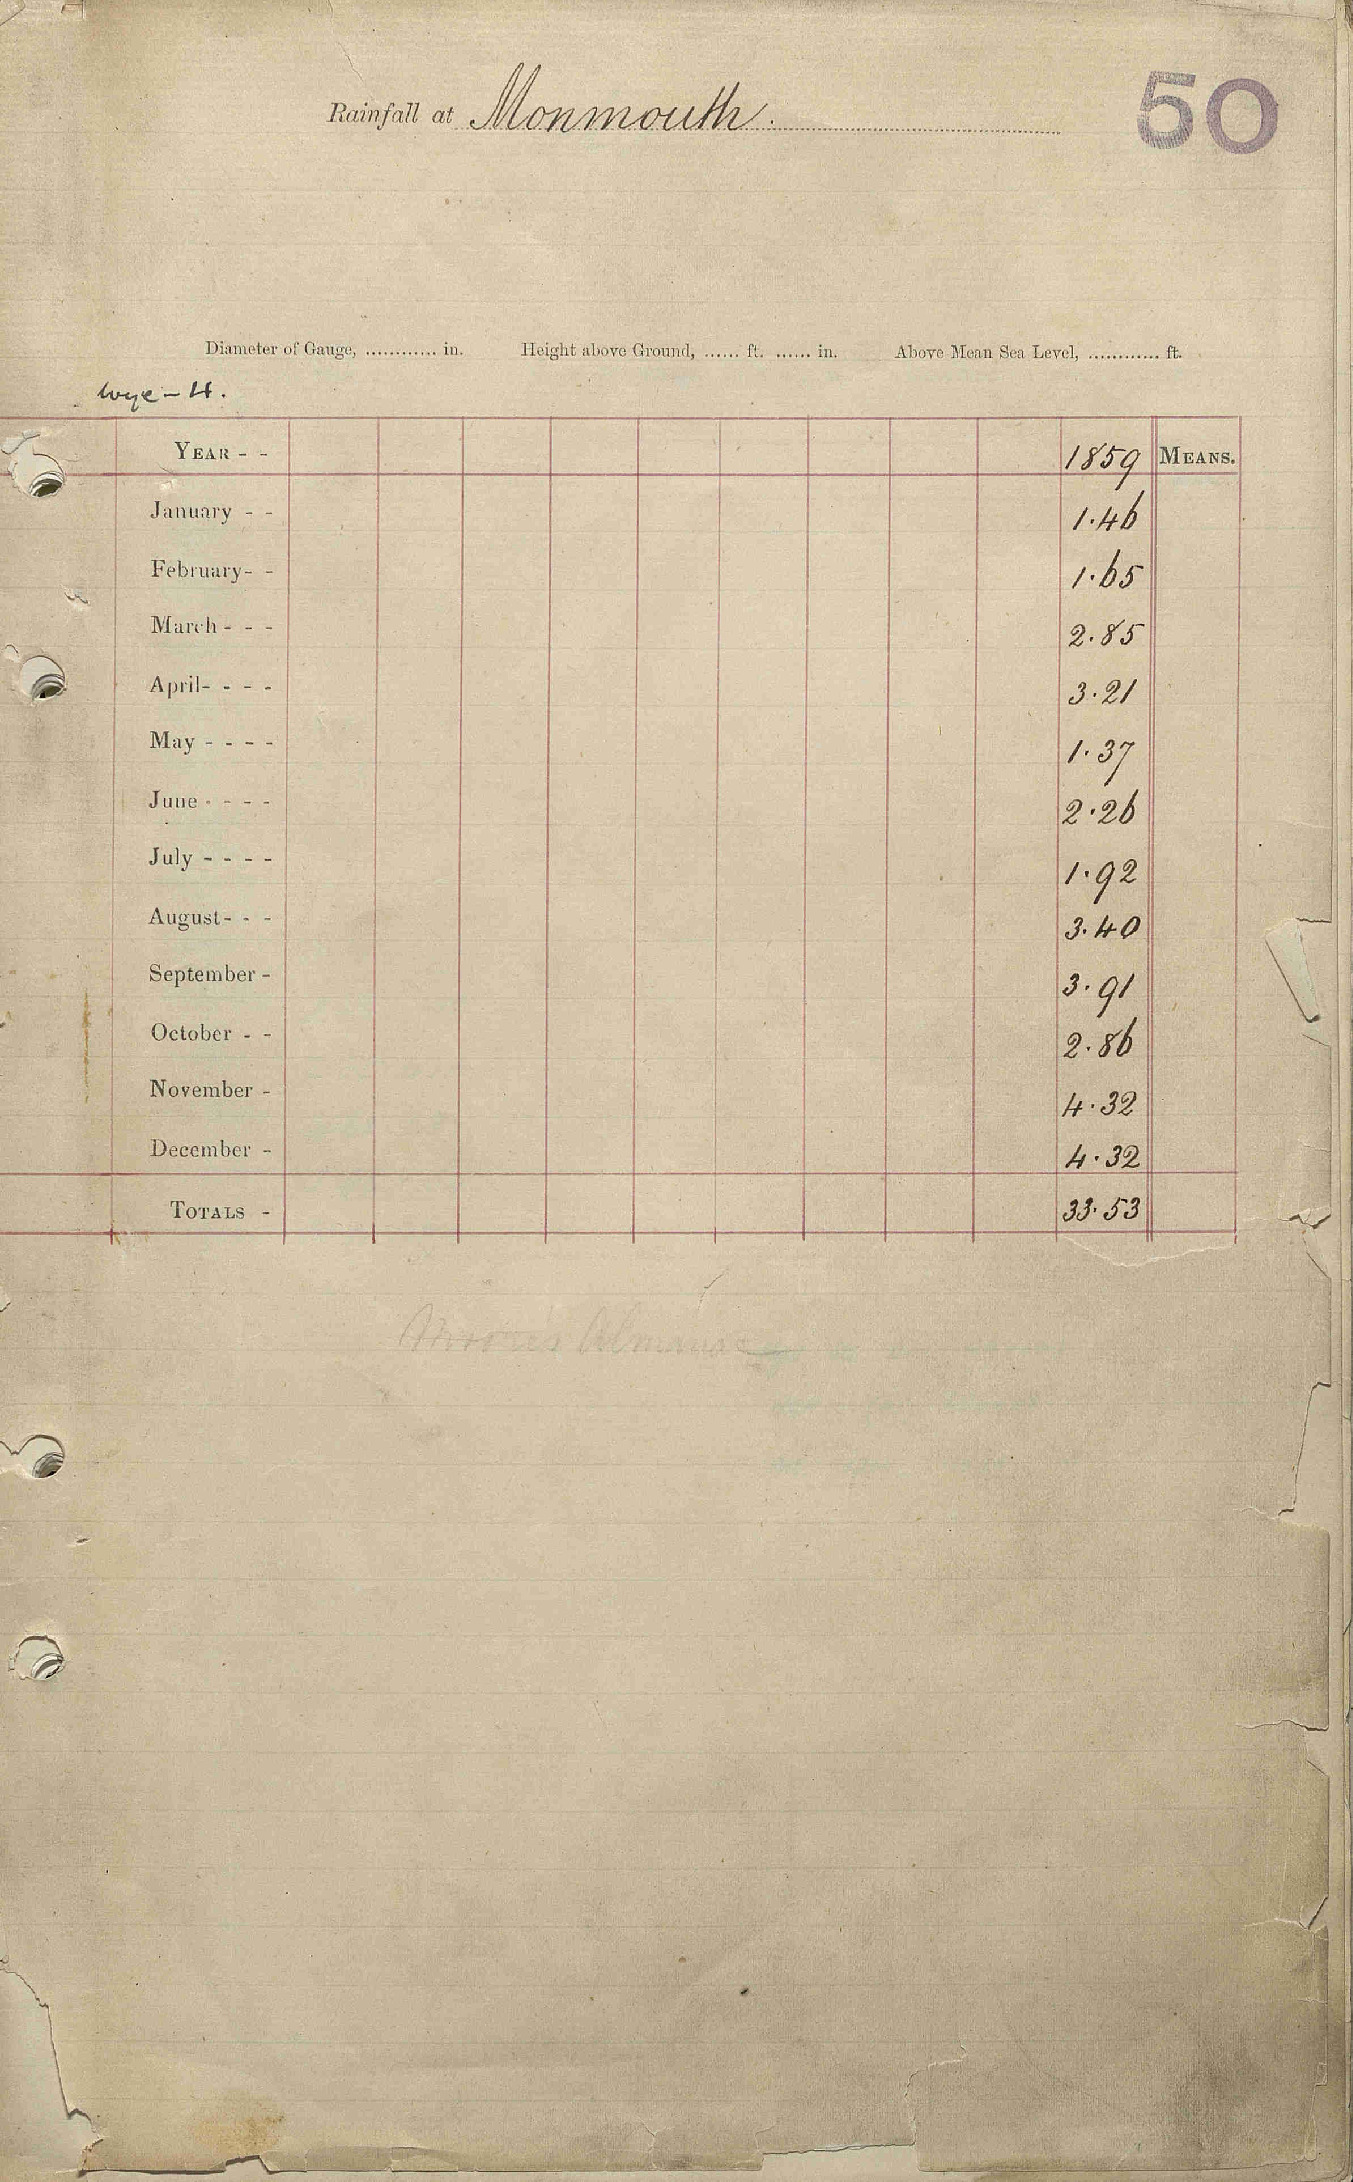 50
Rainfall at Monmouth.
Diameter of Gauge, ............ in. Height above Ground, ...... ft. ...... in. Above Mean Sea Level, ............ ft.
Wye - H.
YEAR - - 1859 MEANS.
January - - 1.46
February- - 1.65
March - - - 2.85
April- - - - 3.21
May - - - - 1.37
June - - - - 2.26
July - - - - 1.92
August- - - 3.40
September - 3.91
October - - 2.86
November - 4.32
December - 4.32
TOTALS - 33.53
Moore's Almanac